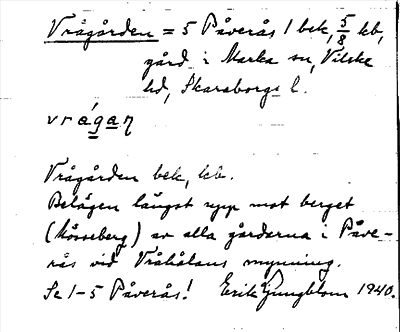 Vrågården = 5 Påverås 1 bek, 5/8 kb,
gård i Marka sn, Vilske
hd, Skaraborgs l.
vrågaη
Vrågården bek, kb.
Belägen längst upp mot berget
(Mösseberg) av alla gårdarna i Påve-
rås vid Vråhålans mynning.
Se 1-5 Påverås! Erik Ljungblom 1940.